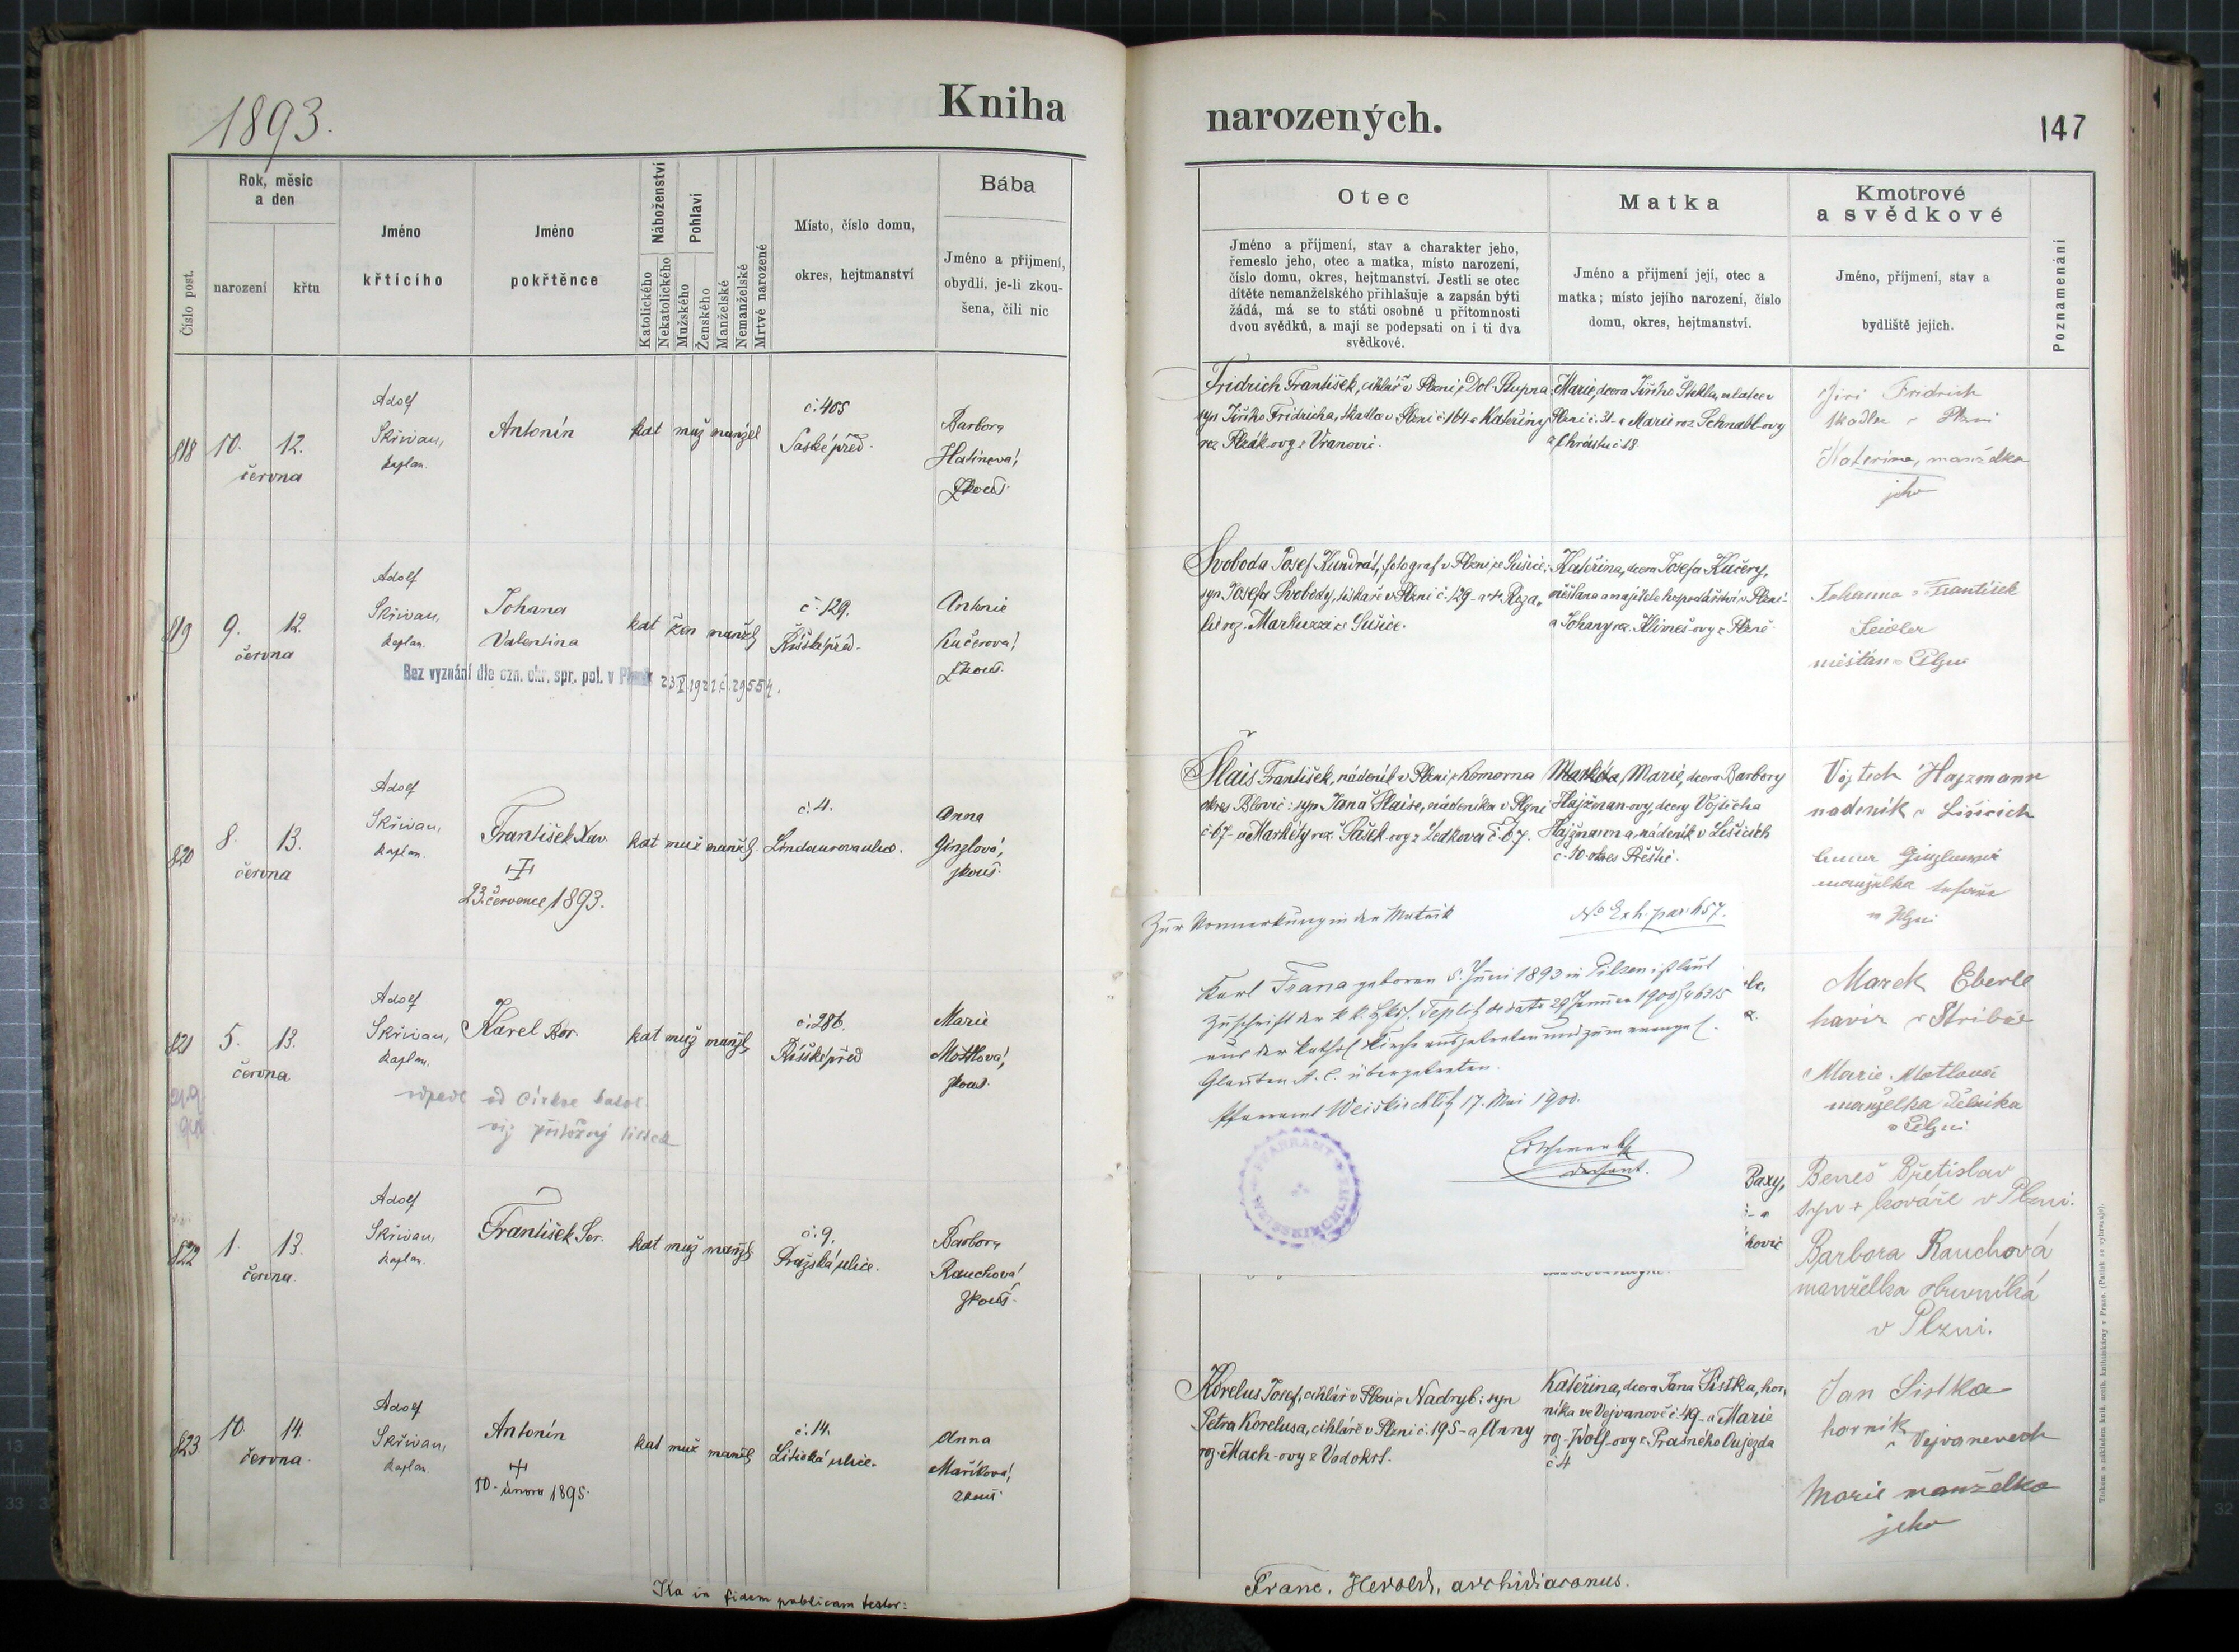 1893.
Kniha
Rok, měsíc
a den
narození
křtu
Číslo post.
Jméno
křticího
Jméno
pokřtěnce
Náboženství
Katolického
Nekatolického
Pohlaví
Mužského
Ženského
Manželské
Nemanželské
Mrtvě narozené
Místo, číslo domu,
okres, hejtmanství
Bába
Jméno a přijmení,
obydlí, je-li zkou-
šena, čili nic
818
10.
12.
června
Adolf
Skřivan,
kaplan.
Antonín
kat muž manžel
č. 405
Saské před.
Barbora
zkouš.
819
9.
12.
června
Adolf
Skřivan,
kaplan.
Johana
Valentina
kat žen manžel
č. 129.
Říšské před.
Antonie
Kučerová,
zkouš.
Bez vyznání dle ozn. okr. spr. pol. v
820
8.
13.
června
Adolf
Skřivan,
kaplan.
František Xav.
23. července 1893.
kat muž manžel
č. 4.
Lindaurova ulice.
Anna
Ginzlová,
zkouš.
821
5.
13.
června
Adolf
Skřivan,
kaplan.
Karel Bor.
kat muž manžel
č. 286.
Říšské před
Marie
Mottlová,
zkouš.
od církve katol.
viz přiložený lístek
822
1.
13.
června.
Adolf
Skřivan,
kaplan.
František Ser.
kat muž manžel
č. 9.
Pražská ulice.
Barbora
Rauchová,
zkouš.
823
10
14
června.
Adolf
Skřivan,
kaplan.
Antonín
10. února 1895.
kat muž manžel
č. 14.
Litická ulice.
Anna
Maříková,
zkouš.
Ita in fidem publicam testor:
narozených.
147
Otec
Jméno a příjmení, stav a charakter jeho,
řemeslo jeho, otec a matka, místo narození,
číslo domu, okres, hejtmanství. Jestli se otec
dítěte nemanželského přihlašuje a zapsán býti
žádá, má se to státi osobně u přítomnosti
dvou svědků, a mají se podepsati on i ti dva
svědkové.
Matka
Jméno a přijmení její, otec a
matka; místo jejího narození, číslo
domu, okres, hejtmanství.
Kmotrové
a svědkové
Jméno, příjmení, stav a
bydliště jejich.
Poznamenání
Fridrich František, cihlář v Plzni z Dol. Stupna
syn Jiřího Fridricha, v Plzni č. 164 a Kateřiny
roz. z Vranovic.
Marie, dcera Jiřího
Plzni č. 31 a Marie roz. Schnabl-ovy
z Chrástu č. 18
Jiří Fridrich
v Plzni
Kateřina, manželka
jeho
Svoboda Josef Kundrát, fotograf v Plzni ze Sušice;
syn Josefa Svobody, v Plzni č. 129 a
roz. Markuzzi ze Sušice.
Kateřina, dcera Josefa Kučery,
měšťana a majitele hospodářství v Plzni
a Johany roz. Klimeš-ovy z Plzně
Johanna a František
Seidler
měšťan v Plzni
Šlais František, nádeník v Plzni z Komorna
okres Blovic: syn Jana Šlaise, nádeníka v Plzni
č. 67 a Markéty roz. Pašek-ovy z Ledkova č. 67.
Marie, dcera Barbory
Hajžman-ovy, dcery Vojtěcha
Hajžmanna, nádeník v Lišicích
č. 10 okres Přeštic.
Vojtěch Hajzmann
nadeník v Lišicích
Ginzlová
manželka
v Plzni
Zur Vormerkung in der Matrik
No Exh. par. 657.
Karl Frana geboren 5. Juni 1893 in Pilsen ist laut
Zuschrift der k. k. Teplitz de dato 29 Jänner 1900
aus der kathol. Kirche ausgetreten und zum evangel.
Glauben A. C. übergetreten.
Pfarramt Weiskirchlitz 17. Mai 1900.
Dechant.
Marek Eberle
havíř v Stříbře
Marie Motlová
manželka dělníka
v Plzni
Beneš Břetislav
syn kováře v Plzni.
Barbora Rauchová
manželka
v Plzni.
Korelus Josef, cihlář v Plzni z Nadryb: syn
Petra Korelusa, cihláře v Plzni č. 195 a Anny
roz. Mach-ovy z Vodokrt.
Kateřina, dcera Jana Šistka, hor-
níka ve Vejvanově č. 49 a Marie
roz. Wolf-ovy z Prašného Oujezda
č. 4
Jan Sistka
horník
v Vejvanovech
Marie manželka
jeho
Franc. Herold, archidiaconus.